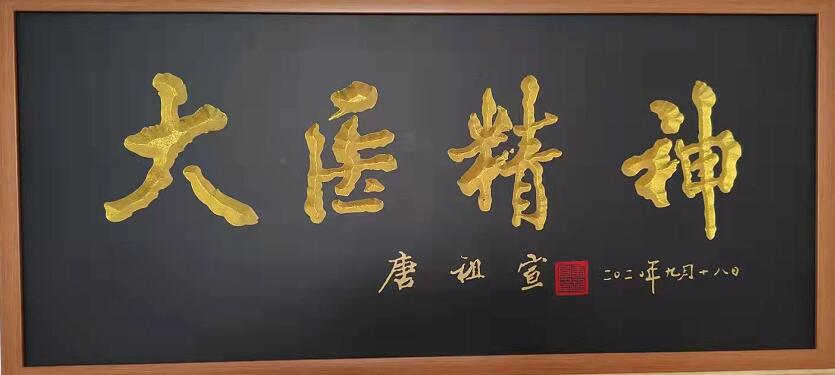 大医精神
唐祖宣 二〇二〇年九月十八日